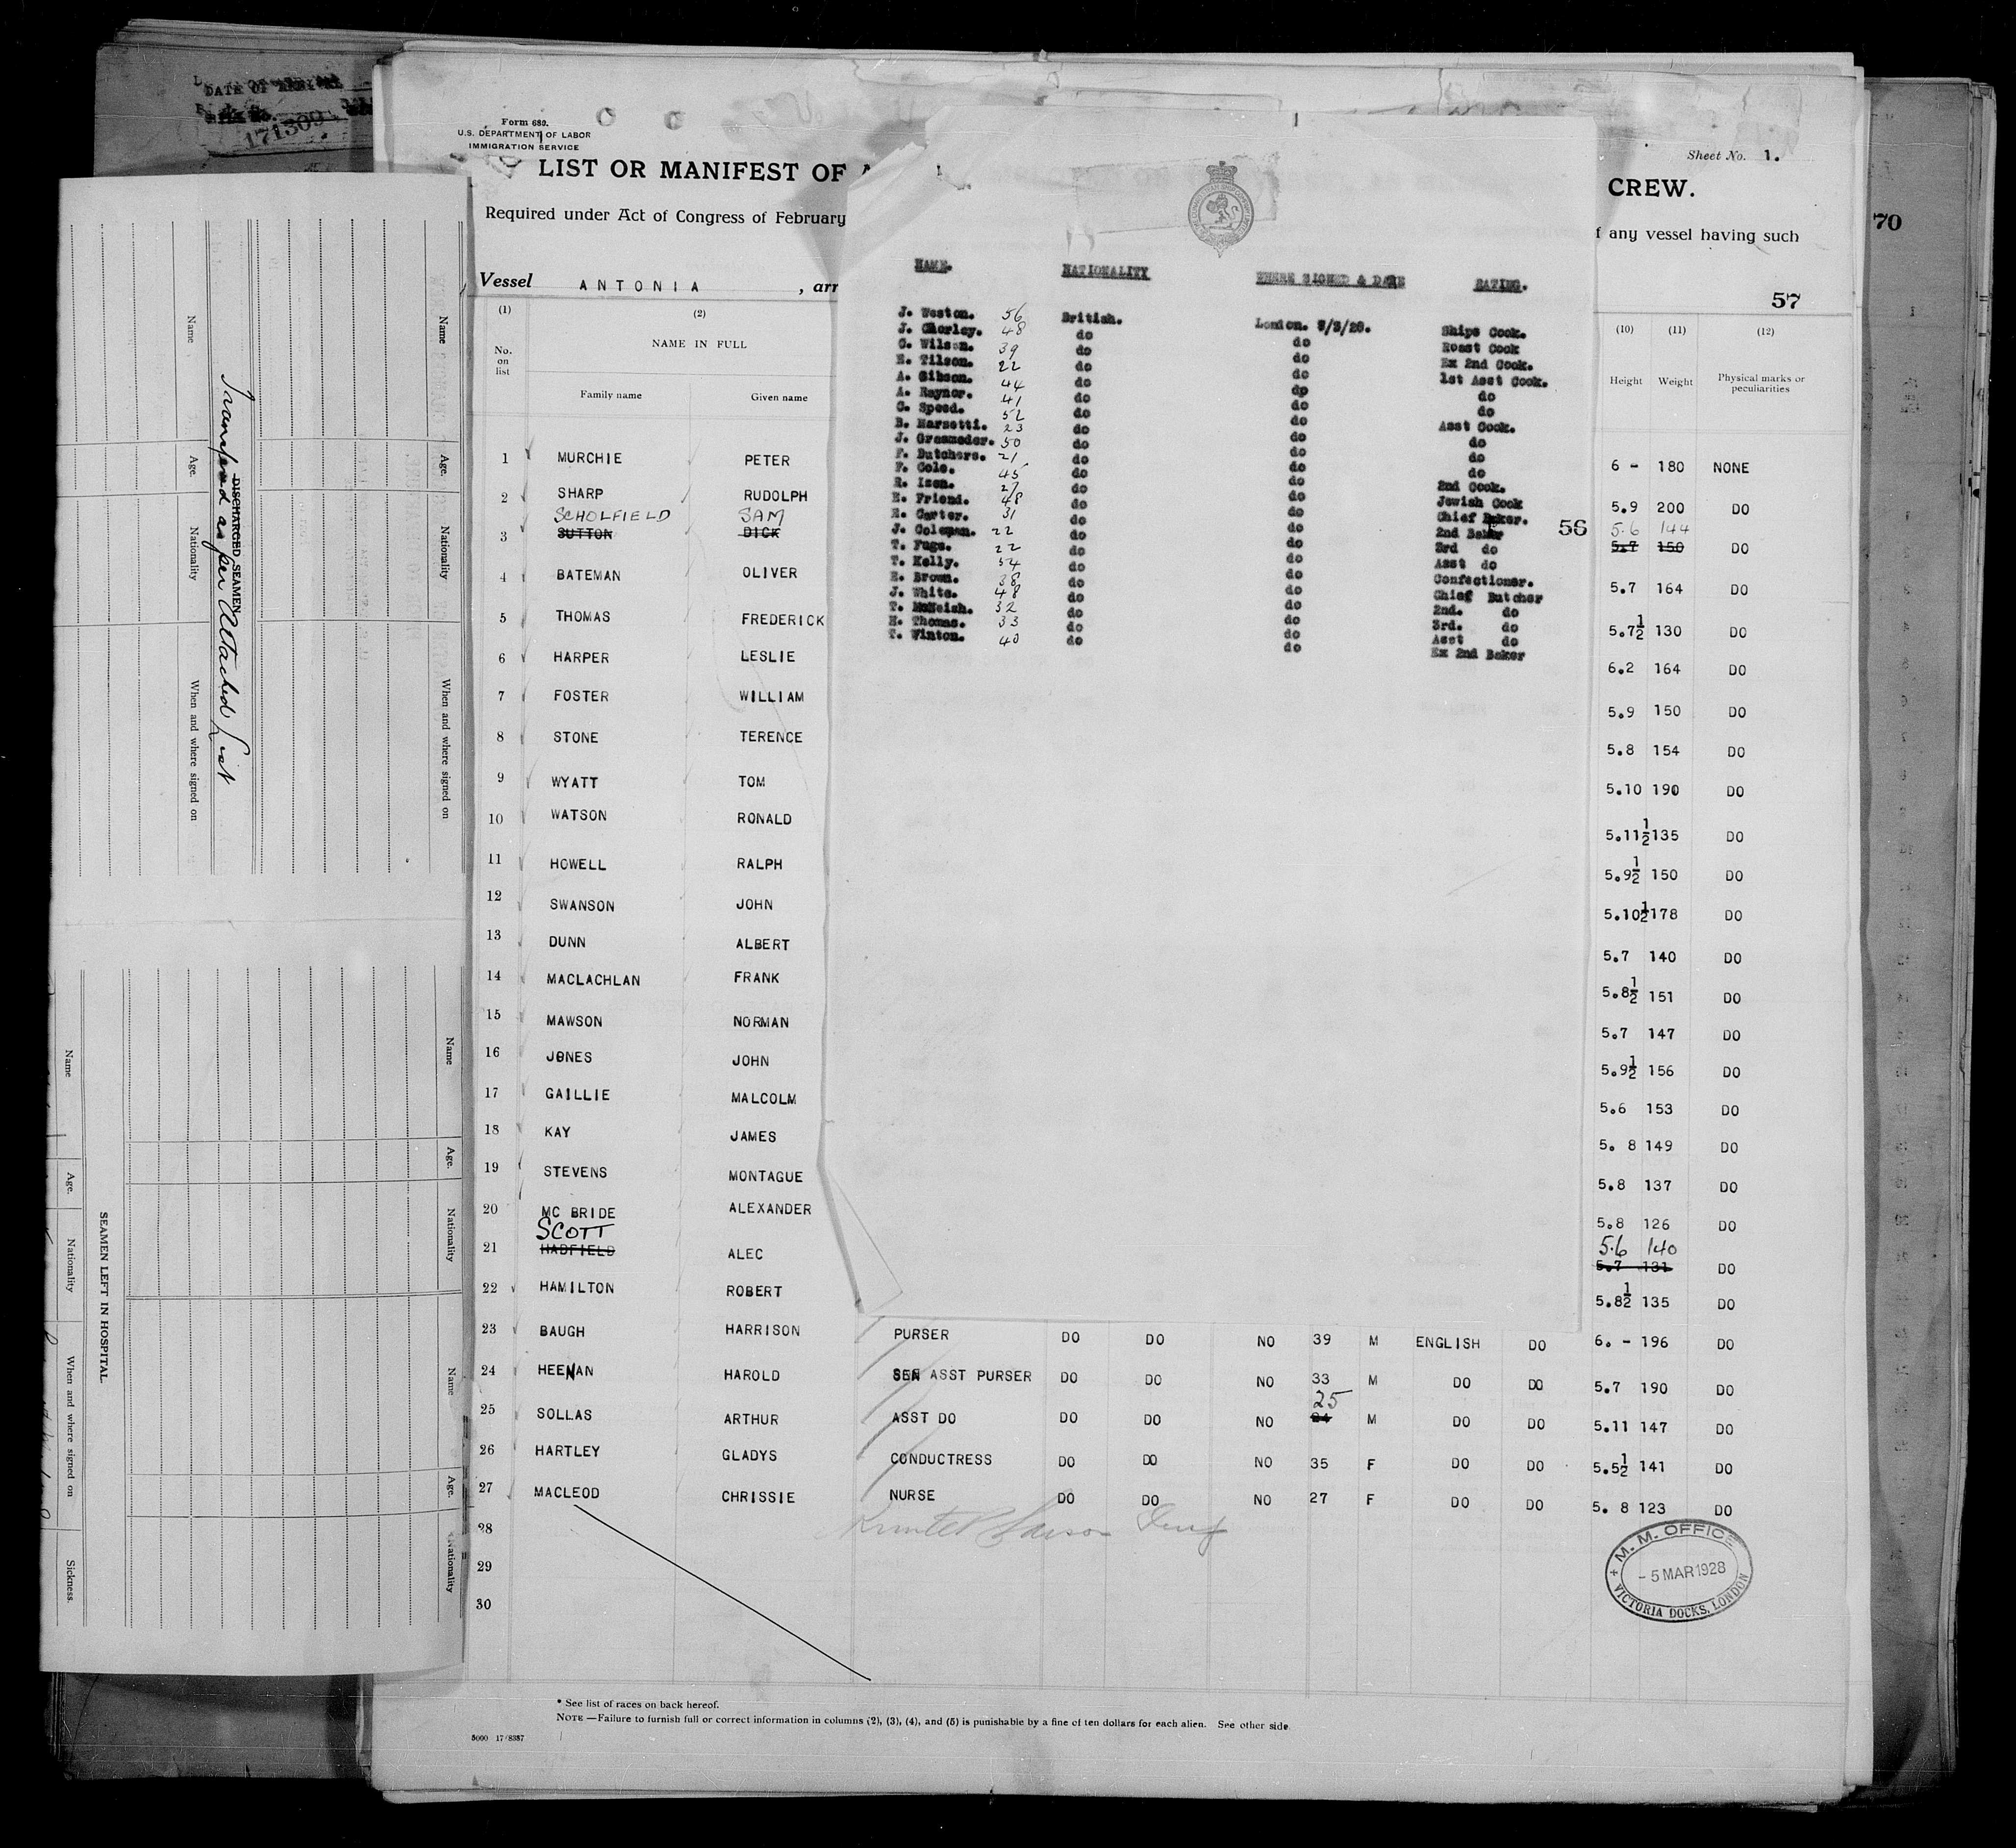 DATE OF
171309
Form 680.
U.S. DEPARTMENT OF LABOR
IMMIGRATION SERVICE
LIST OR MANIFEST OF A
Required under Act of Congress of February
Vessel ANTONIA , arr
Sheet No. 1.
CREW.
f any vessel having such
57
70
(1) (2)
No. on list
NAME IN FULL
Family name Given name
(10) (11) (12)
Height Weight Physical marks or peculiarities
NAME. NATIONALITY WHERE SIGNED & DATE RATING.
J. Weston. 56 British. London. 5/3/28. Ships Cook.
J. Chorley. 48 do do Roast Cook
C. Wilson. 39 do do Ex 2nd Cook.
E. Tilson. 22 do do 1st Asst Cook.
A. Gibson. 44 do dp do
A. Raynor. 41 do do do
C. Speed. 52 do do Asst Cook.
B. Marzetti. 23 do do do
J. Grasmeder. 50 do do do
F. Butchers. 21 do do do
F. Cole. 45 do do 2nd Cook.
R. Izen. 27 do do Jewish Cook
E. Friend. 48 do do Chief Baker.
E. Carter. 31 do do 2nd Baker
J. Coleman. 22 do do 3rd do
T. Fuge. 22 do do Asst do
T. Kelly. 54 do do Confectioner.
E. Brown. 38 do do Chief Butcher
J. White. 48 do do 2nd. do
T. McNeish. 32 do do 3rd. do
H. Thomas. 33 do do Asst do
T. Winton. 40 do do Ex 2nd Baker
56
1 MURCHIE PETER 6 - 180 NONE
2 SHARP RUDOLPH 5.9 200 DO
SCHOLFIELD SAM 5.6 144
3 SUTTON DICK 5.7 150 DO
4 BATEMAN OLIVER 5.7 164 DO
5 THOMAS FREDERICK 5.7½ 130 DO
6 HARPER LESLIE 6.2 164 DO
7 FOSTER WILLIAM 5.9 150 DO
8 STONE TERENCE 5.8 154 DO
9 WYATT TOM 5.10 190 DO
10 WATSON RONALD 5.11½ 135 DO
11 HOWELL RALPH 5.9½ 150 DO
12 SWANSON JOHN 5.10½ 178 DO
13 DUNN ALBERT 5.7 140 DO
14 MACLACHLAN FRANK 5.8½ 151 DO
15 MAWSON NORMAN 5.7 147 DO
16 JONES JOHN 5.9½ 156 DO
17 GAILLIE MALCOLM 5.6 153 DO
18 KAY JAMES 5. 8 149 DO
19 STEVENS MONTAGUE 5.8 137 DO
20 MC BRIDE ALEXANDER 5.8 126 DO
SCOTT 5.6 140
21 HADFIELD ALEC 5.7 131 DO
22 HAMILTON ROBERT 5.8½ 135 DO
23 BAUGH HARRISON PURSER DO DO NO 39 M ENGLISH DO 6. - 196 DO
24 HEENAN HAROLD SEN ASST PURSER DO DO NO 33 M DO DO 5.7 190 DO
25
25 SOLLAS ARTHUR ASST DO DO DO NO 24 M DO DO 5.11 147 DO
26 HARTLEY GLADYS CONDUCTRESS DO DO NO 35 F DO DO 5.5½ 141 DO
27 MACLEOD CHRISSIE NURSE DO DO NO 27 F DO DO 5. 8 123 DO
28
29
30
M. M. OFFICE
- 5 MAR 1928
VICTORIA DOCKS, LONDON
* See list of races on back hereof.
NOTE —Failure to furnish full or correct information in columns (2), (3), (4), and (5) is punishable by a fine of ten dollars for each alien. See other side
5000 17/8387
Name Age. Nationality When and where signed on
DISCHARGED SEAMEN
Transferred as per Attached List
Name Age. Nationality When and where signed on
SEAMEN LEFT IN HOSPITAL
Name Age. Nationality When and where signed on Sickness.
Name Age. Nationality
Name Age. Nationality